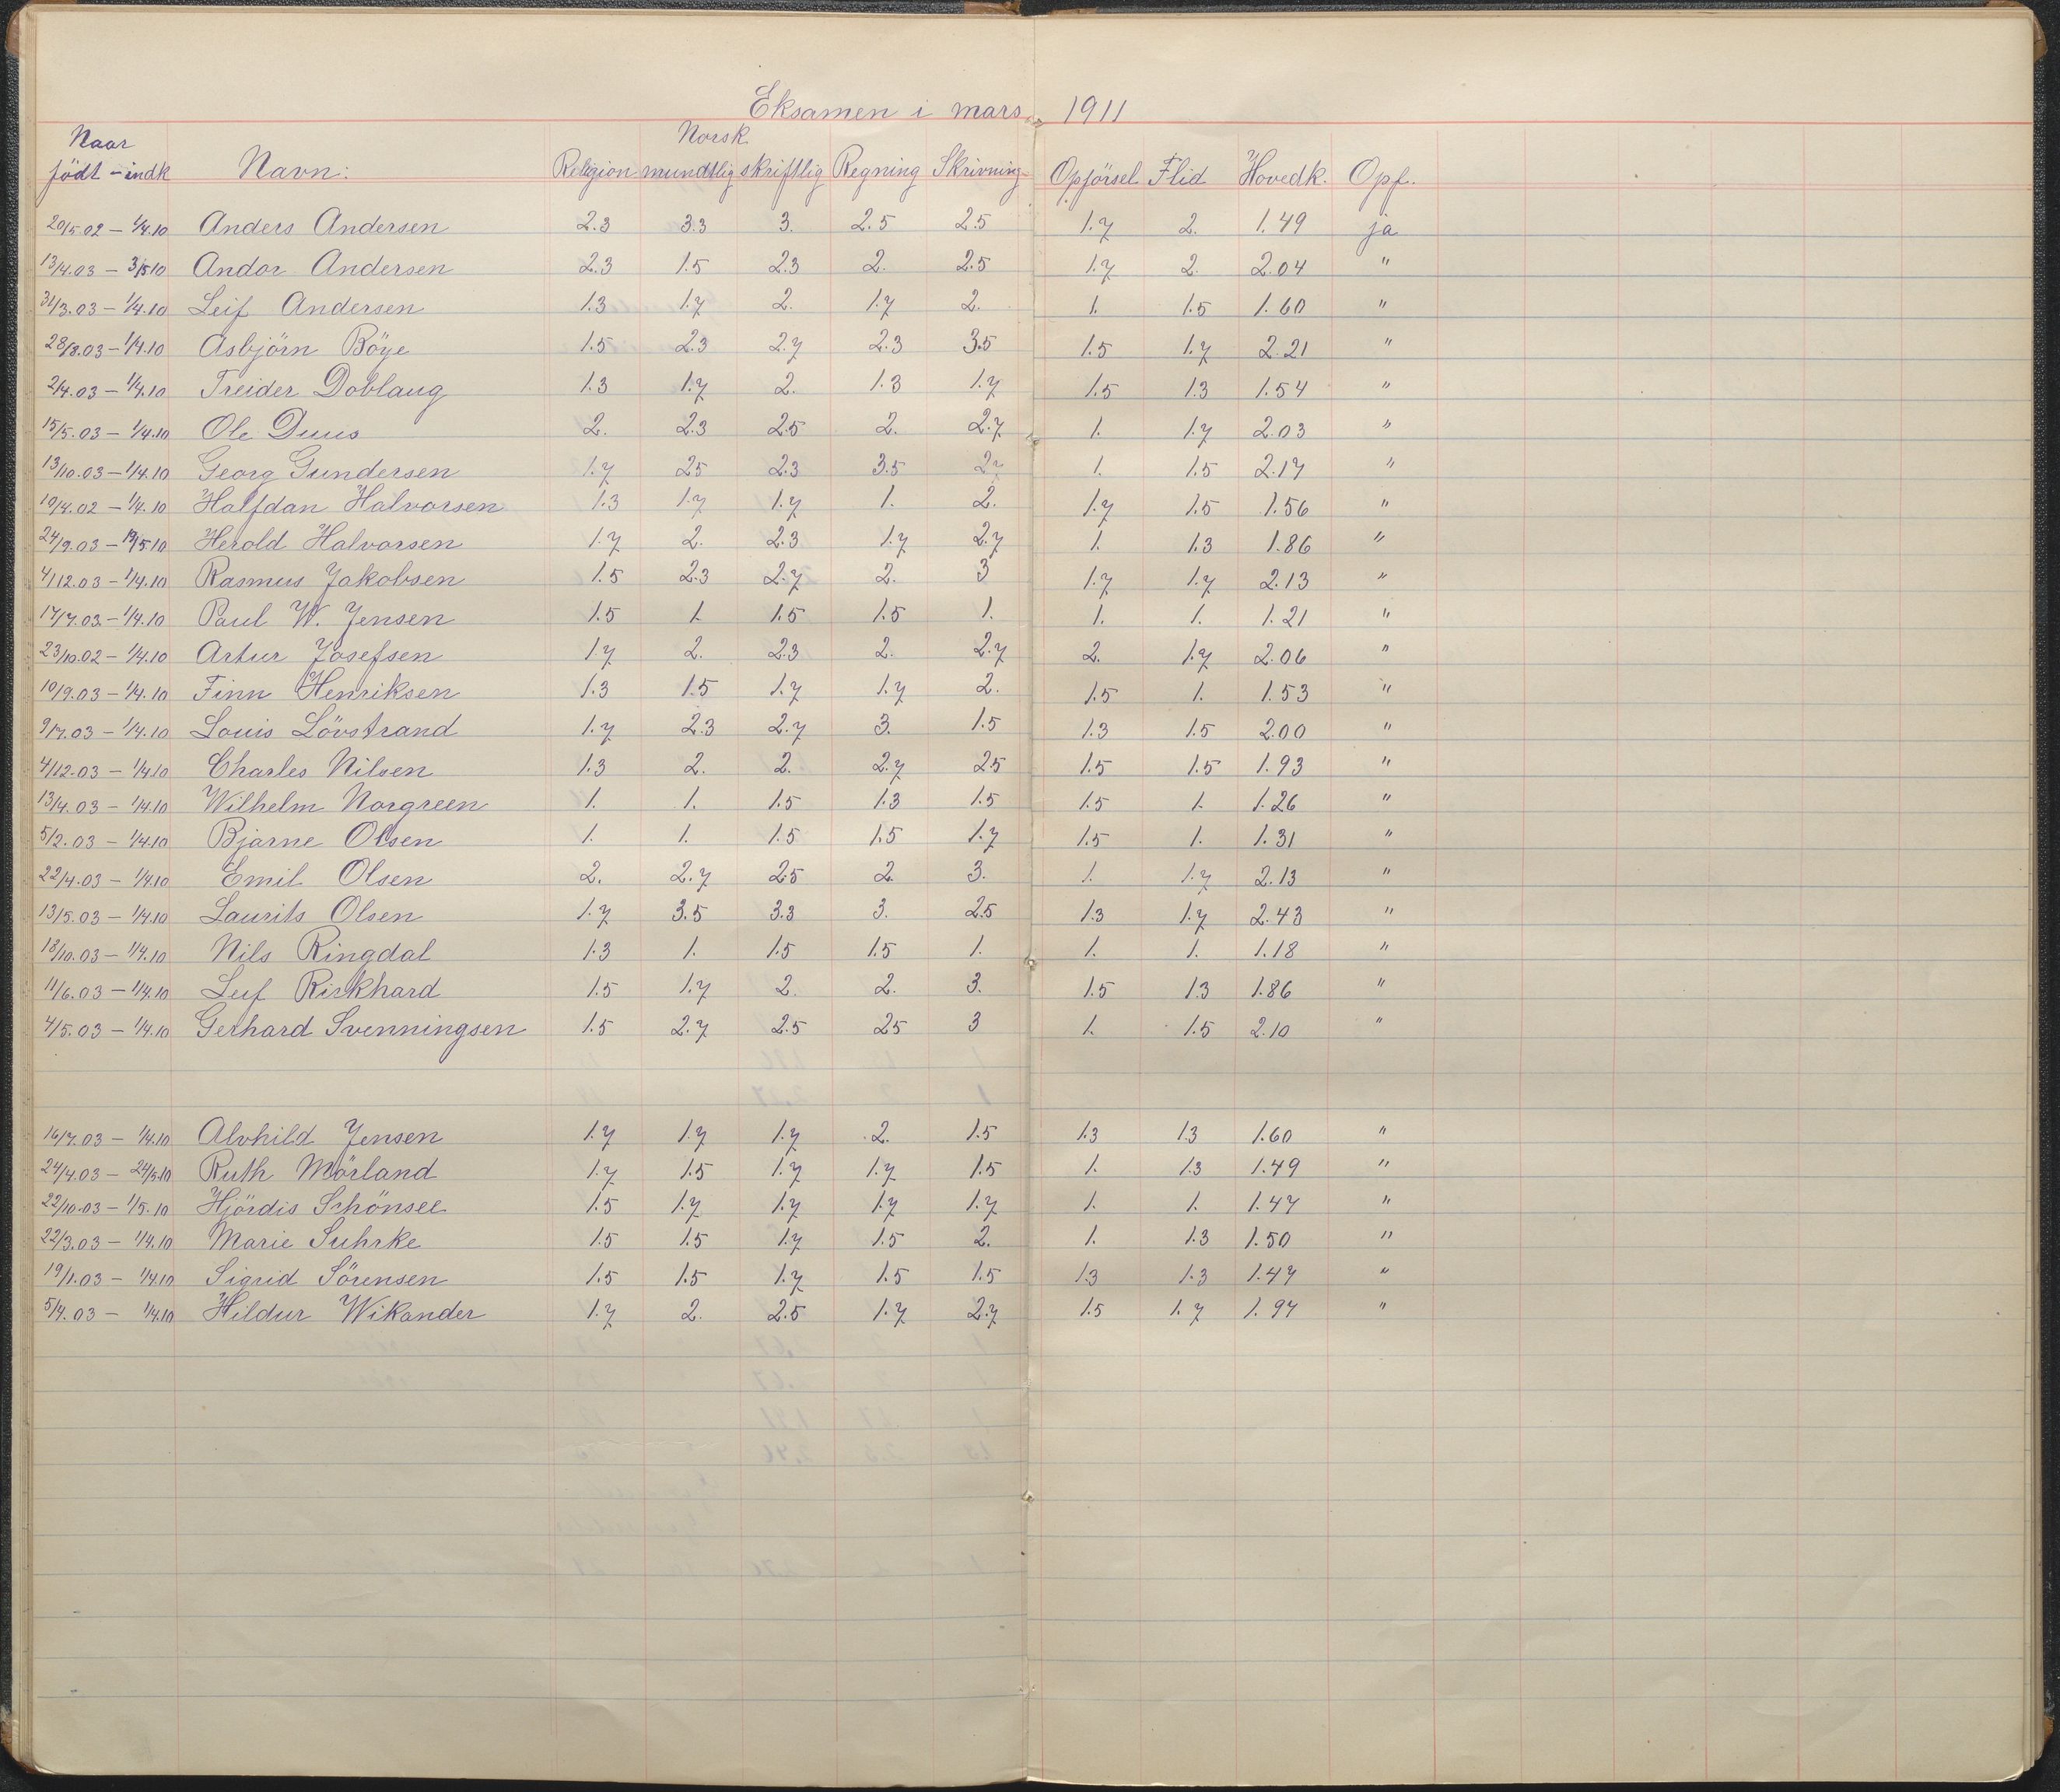 Eksamen i mars 1911
Naar Norsk
födt - indk Navn: Religion mundtlig skriftlig Regning Skrivning Opförsel Flid Hovedk. Opf.
20/5.02 - 1/4.10 Anders Andersen 2.3 3.3 3. 2.5 2.5 1.7 2. 1.49 ja
13/4.03 - 3/5 10 Andor Andersen 2.3 1.5 2.3 2. 2.5 1.7 2. 2.04 "
31/3.03 - 1/4.10 Leif Andersen 1.3 1.7 2. 1.7 2. 1. 1.5 1.60 "
28/8.03 - 1/4.10 Asbjörn Böye 1.5 2.3 2.7 2.3 3.5 1.5 1.7 2.21 "
2/4.03 - 1/4.10 Treider Doblaug 1.3 1.7 2. 1.3 1.7 1.5 1.3 1.54 "
15/5.03 - 1/4.10 Ole Duus 2. 2.3 2.5 2. 2.7 1. 1.7 2.03 "
13/10.03 - 1/4.10 Georg Gundersen 1.7 2.5 2.3 3.5 2.7 1. 1.5 2.17 "
10/4.02 - 1/4.10 Halfdan Halvorsen 1.3 1.7 1.7 1. 2. 1.7 1.5 1.56 "
24/9.03 - 19/5 10 Herold Halvorsen 1.7 2. 2.3 1.7 2.7 1. 1.3 1.86 "
4/12.03 - 1/4.10 Rasmus Jakobsen 1.5 2.3 2.7 2. 3 1.7 1.7 2.13 "
17/7.03 - 1/4.10 Paul W. Jensen 1.5 1. 1.5 1.5 1. 1. 1. 1.21 "
23/10.02 - 1/4.10 Artur Josefsen 1.7 2. 2.3 2. 2.7 2. 1.7 2.06 "
10/9.03 - 1/4.10 Finn Henriksen 1.3 1.5 1.7 1.7 2. 1.5 1. 1.53 "
9/7.03 - 1/4.10 Louis Lövstrand 1.7 2.3 2.7 3. 1.5 1.3 1.5 2.00 "
4/12.03 - 1/4.10 Charles Nilsen 1.3 2. 2. 2.7 2.5 1.5 1.5 1.93 "
13/4.03 - 1/4.10 Wilhelm Norgreen 1. 1. 1.5 1.3 1.5 1.5 1. 1.26 "
5/2.03 - 1/4.10 Bjarne Olsen 1. 1. 1.5 1.5 1.7 1.5 1. 1.31 "
22/4.03 - 1/4.10 Emil Olsen 2. 2.7 2.5 2. 3. 1. 1.7 2.13 "
13/5.03 - 1/4.10 Laurits Olsen 1.7 3.5 3.3 3. 2.5 1.3 1.7 2.43 "
18/10.03 - 1/4.10 Nils Ringdal 1.3 1. 1.5 1.5 1. 1. 1. 1.18 "
11/6.03 - 1/4.10 Leif Rickhard 1.5 1.7 2. 2. 3. 1.5 1.3 1.86 "
4/5.03 - 1/4.10 Gerhard Svenningsen 1.5 2.7 2.5 2.5 3 1. 1.5 2.10 "
16/7.03 - 1/4.10 Alvhild Jensen 1.7 1.7 1.7 2. 1.5 1.3 1.3 1.60 "
24/4.03 - 24/5.10 Ruth Mörland 1.7 1.5 1.7 1.7 1.5 1. 1.3 1.49 "
22/10.03 - 1/5.10 Hjördis Schönsee 1.5 1.7 1.7 1.7 1.7 1. 1. 1.47 "
22/3.03 - 1/4.10 Marie Suhrke 1.5 1.5 1.7 1.5 2. 1. 1.3 1.50 "
19/1.03 - 1/4.10 Sigrid Sörensen 1.5 1.5 1.7 1.5 1.5 1.3 1.3 1.47 "
5/4.03 - 1/4.10 Hildur Wikander 1.7 2. 2.5 1.7 2.7 1.5 1.7 1.97 "